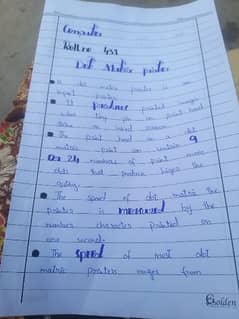 Computer
Roll no 451
Dot Matrix printer
A dot matrix printer is an
input printer.
It produce printed images
when tiny pin on print head
on inked
The print head on a dot
matrix print contain 9
Or 24 numbers of print
dots that produce
quality.
The speed of dot matrix the
printer is measured by the
numbers characters printed on
one second.
The speed of most dot
matrix printers ranges from